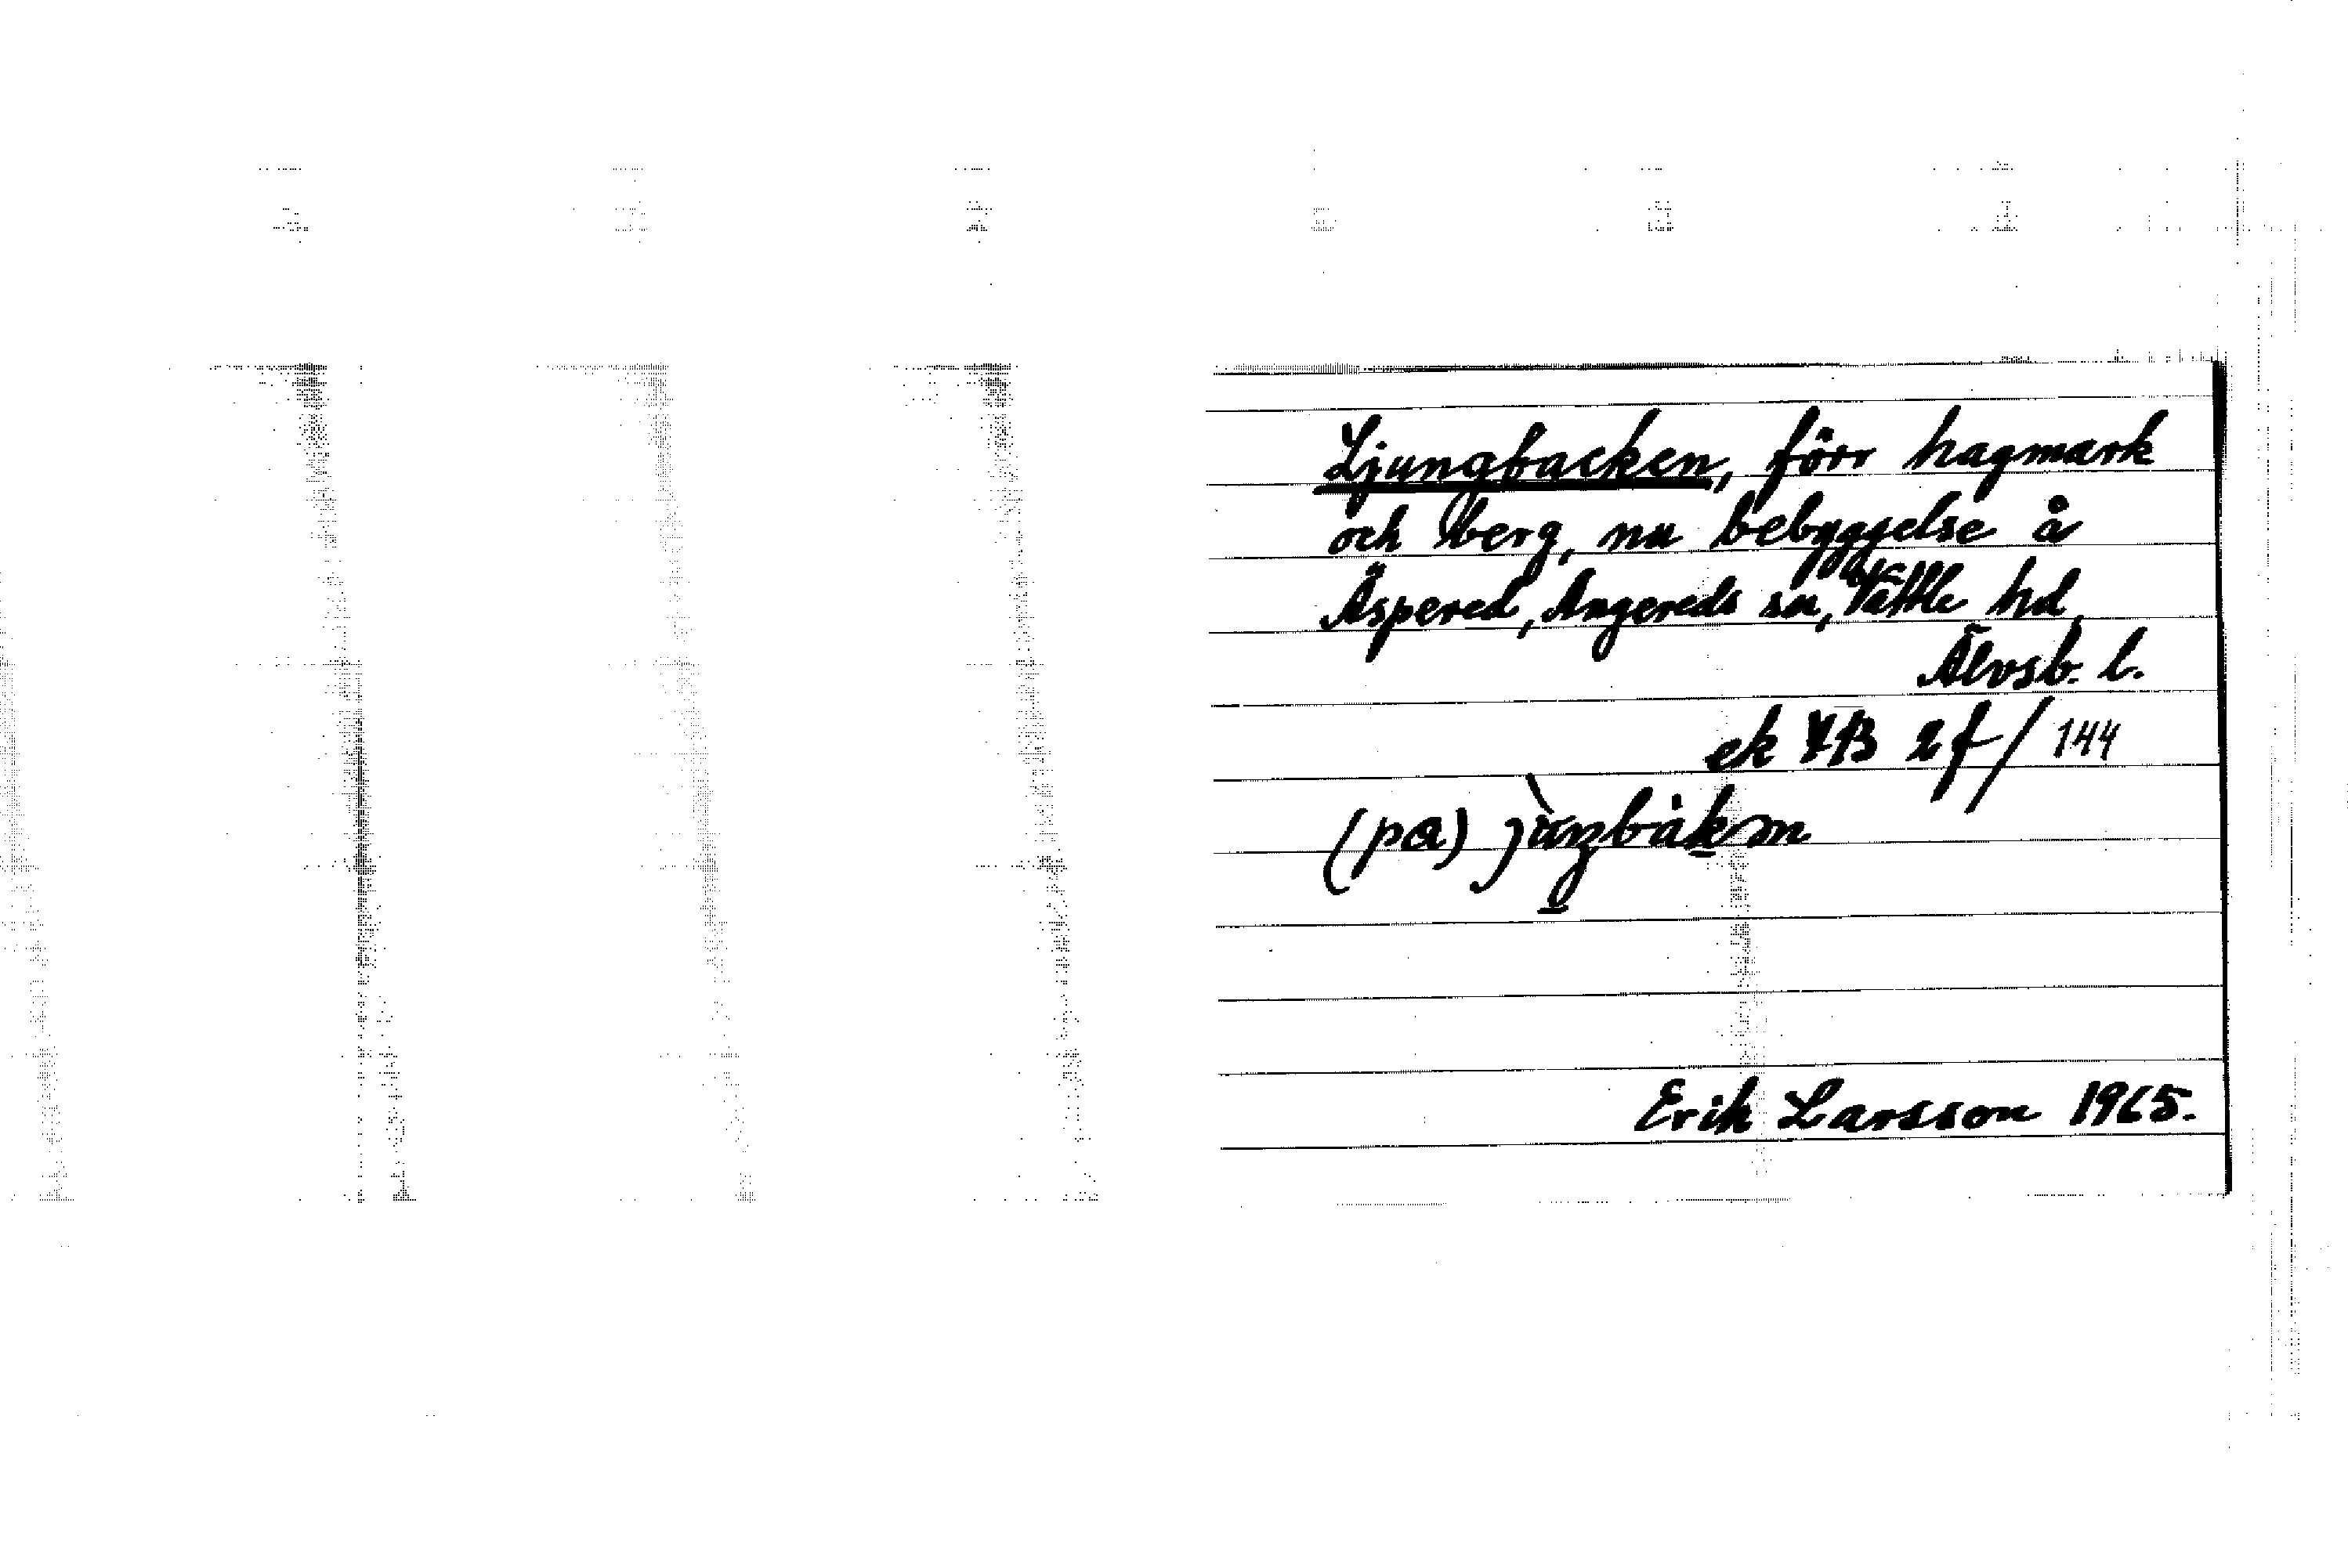 Ljungbacken, förr hagmark
och berg, nu bebyggelse å
Äspered, Angereds sn, Vättle hd,
Älvsb. l.
ek 7B 2f/144
(pa)
Erik Larsson 1965.